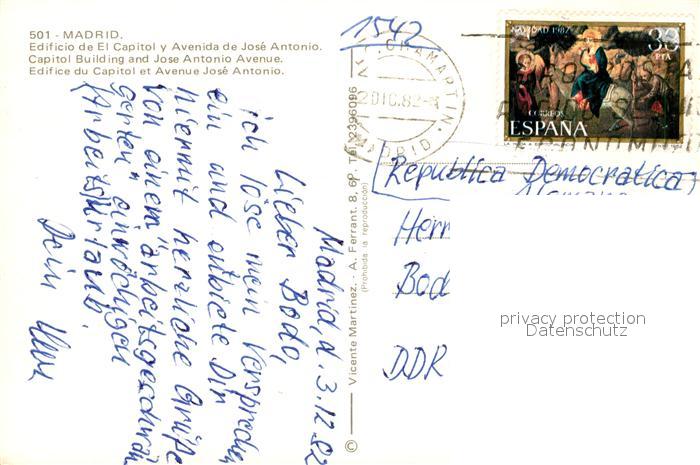 501 - MADRID.
Edificio de El Capitol y Avenida de José Antonio.
Capitol Building and Jose Antonio Avenue.
Edifice du Capitol et Avenue José Antonio.
1542
CHAMARTIN
2 DIC. 82
MADRID
NAVIDAD 1982
PTA
CORREOS
ESPAÑA
Republica Democratica
Herr
Bod
DDR
privacy protection
Datenschutz
Vicente Martinez. - A. Ferrant. 8, 6º. Tel. 2396096
(Prohibida la reproducción)
©
Madrid, d. 3.12.82
Lieber Bodo,
ich löse mein Versprechen
ein und entbiete Dir
hiermit herzliche Grüße
von einem "arbeitsgeschwän
gerten" einwöchigen
Arbeitsurlaub.
Dein